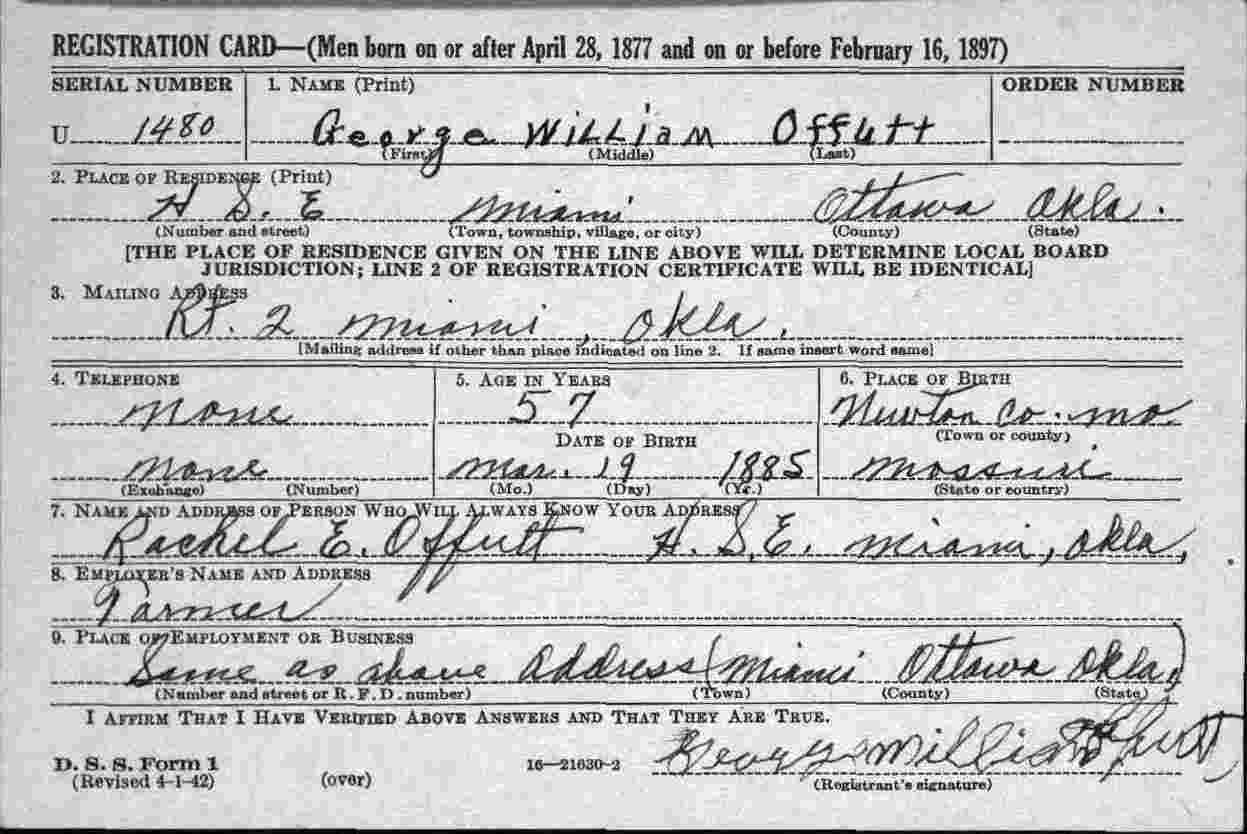 REGISTRATION CARD—(Men born on or after April 28, 1877 and on or before February 16, 1897)
SERIAL NUMBER 1. NAME (Print) ORDER NUMBER
U 1480 George William Offutt
(First) (Middle) (Last)
2. PLACE OF RESIDENCE (Print)
H S. E Miami Ottawa Okla.
(Number and street) (Town, township, village, or city) (County) (State)
[THE PLACE OF RESIDENCE GIVEN ON THE LINE ABOVE WILL DETERMINE LOCAL BOARD
JURISDICTION; LINE 2 OF REGISTRATION CERTIFICATE WILL BE IDENTICAL]
3. MAILING ADDRESS
Rt. 2 Miami, Okla.
[Mailing address if other than place indicated on line 2. If same insert word same]
4. TELEPHONE 5. AGE IN YEARS 6. PLACE OF BIRTH
None 57 Newton Co. Mo
DATE OF BIRTH (Town or county)
None Mar. 19 1885 Mossuri
(Exchange) (Number) (Mo.) (Day) (Yr.) (State or country)
7. NAME AND ADDRESS OF PERSON WHO WILL ALWAYS KNOW YOUR ADDRESS
Rachel E. Offutt H. S. E. Miami, Okla,
8. EMPLOYER'S NAME AND ADDRESS
Farmer
9. PLACE OF EMPLOYMENT OR BUSINESS
Same as above address (Miami Ottawa Okla)
(Number and street or R. F. D. number) (Town) (County) (State)
I AFFIRM THAT I HAVE VERIFIED ABOVE ANSWERS AND THAT THEY ARE TRUE.
George William Offutt
D. S. S. Form 1 16—21630-2
(Revised 4-1-42) (over) (Registrant's signature)